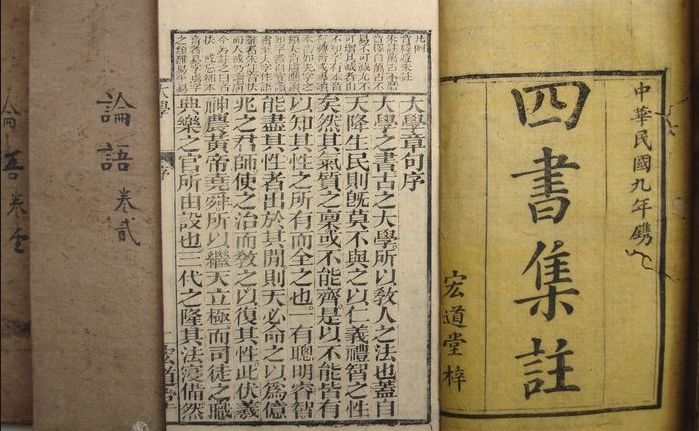 中華民國九年鐫
四書集註
宏道堂梓
凡例
大學章句序
大學之書古之大學所以教人之法也蓋自
天降生民則旣莫不與之以仁義禮智之性
矣然其氣質之稟或不能齊是以不能皆有
以知其性之所有而全之也一有聰明睿智
能盡其性者出於其閒則天必命之以爲億
兆之君師使之治而教之以復其性此伏羲
神農黃帝堯舜所以繼天立極而司徒之職
典樂之官所由設也三代之隆其法寖備然
大學
序
宏道堂
論語 卷貳
論語 卷壹